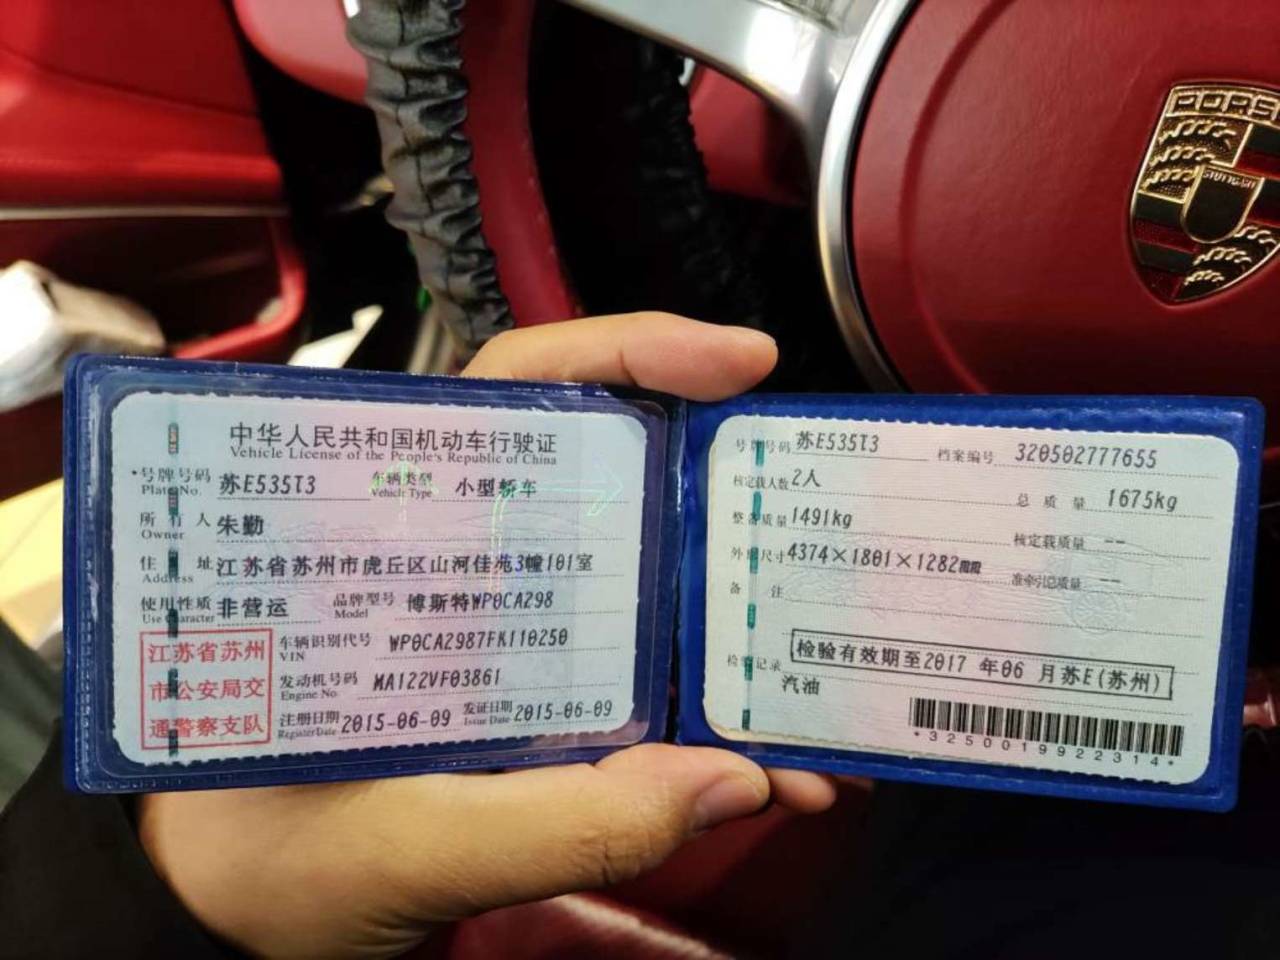 PORS
STUTTGART
中华人民共和国机动车行驶证
Vehicle License of the People's Republic of China
*号牌号码 苏E535T3 车辆类型 小型轿车
Plate No. Vehicle Type
所有人 朱勤
Owner
住址 江苏省苏州市虎丘区山河佳苑3幢101室
Address
使用性质 非营运 品牌型号 博斯特WP0CA298
Use Character Model
江苏省苏州
市公安局交
通警察支队
车辆识别代号 WP0CA2987FK110250
VIN
发动机号码 MA122VF03861
Engine No.
注册日期 2015-06-09 发证日期 2015-06-09
Register Date Issue Date
号牌号码 苏E535T3 档案编号 320502777655
核定载人数 2人 总质量 1675kg
整备质量 1491kg 核定载质量 --
外廓尺寸 4374×1801×1282 准牵引总质量 --
备注
检验记录 检验有效期至2017 年06 月苏E(苏州)
汽油
*3250019922314*